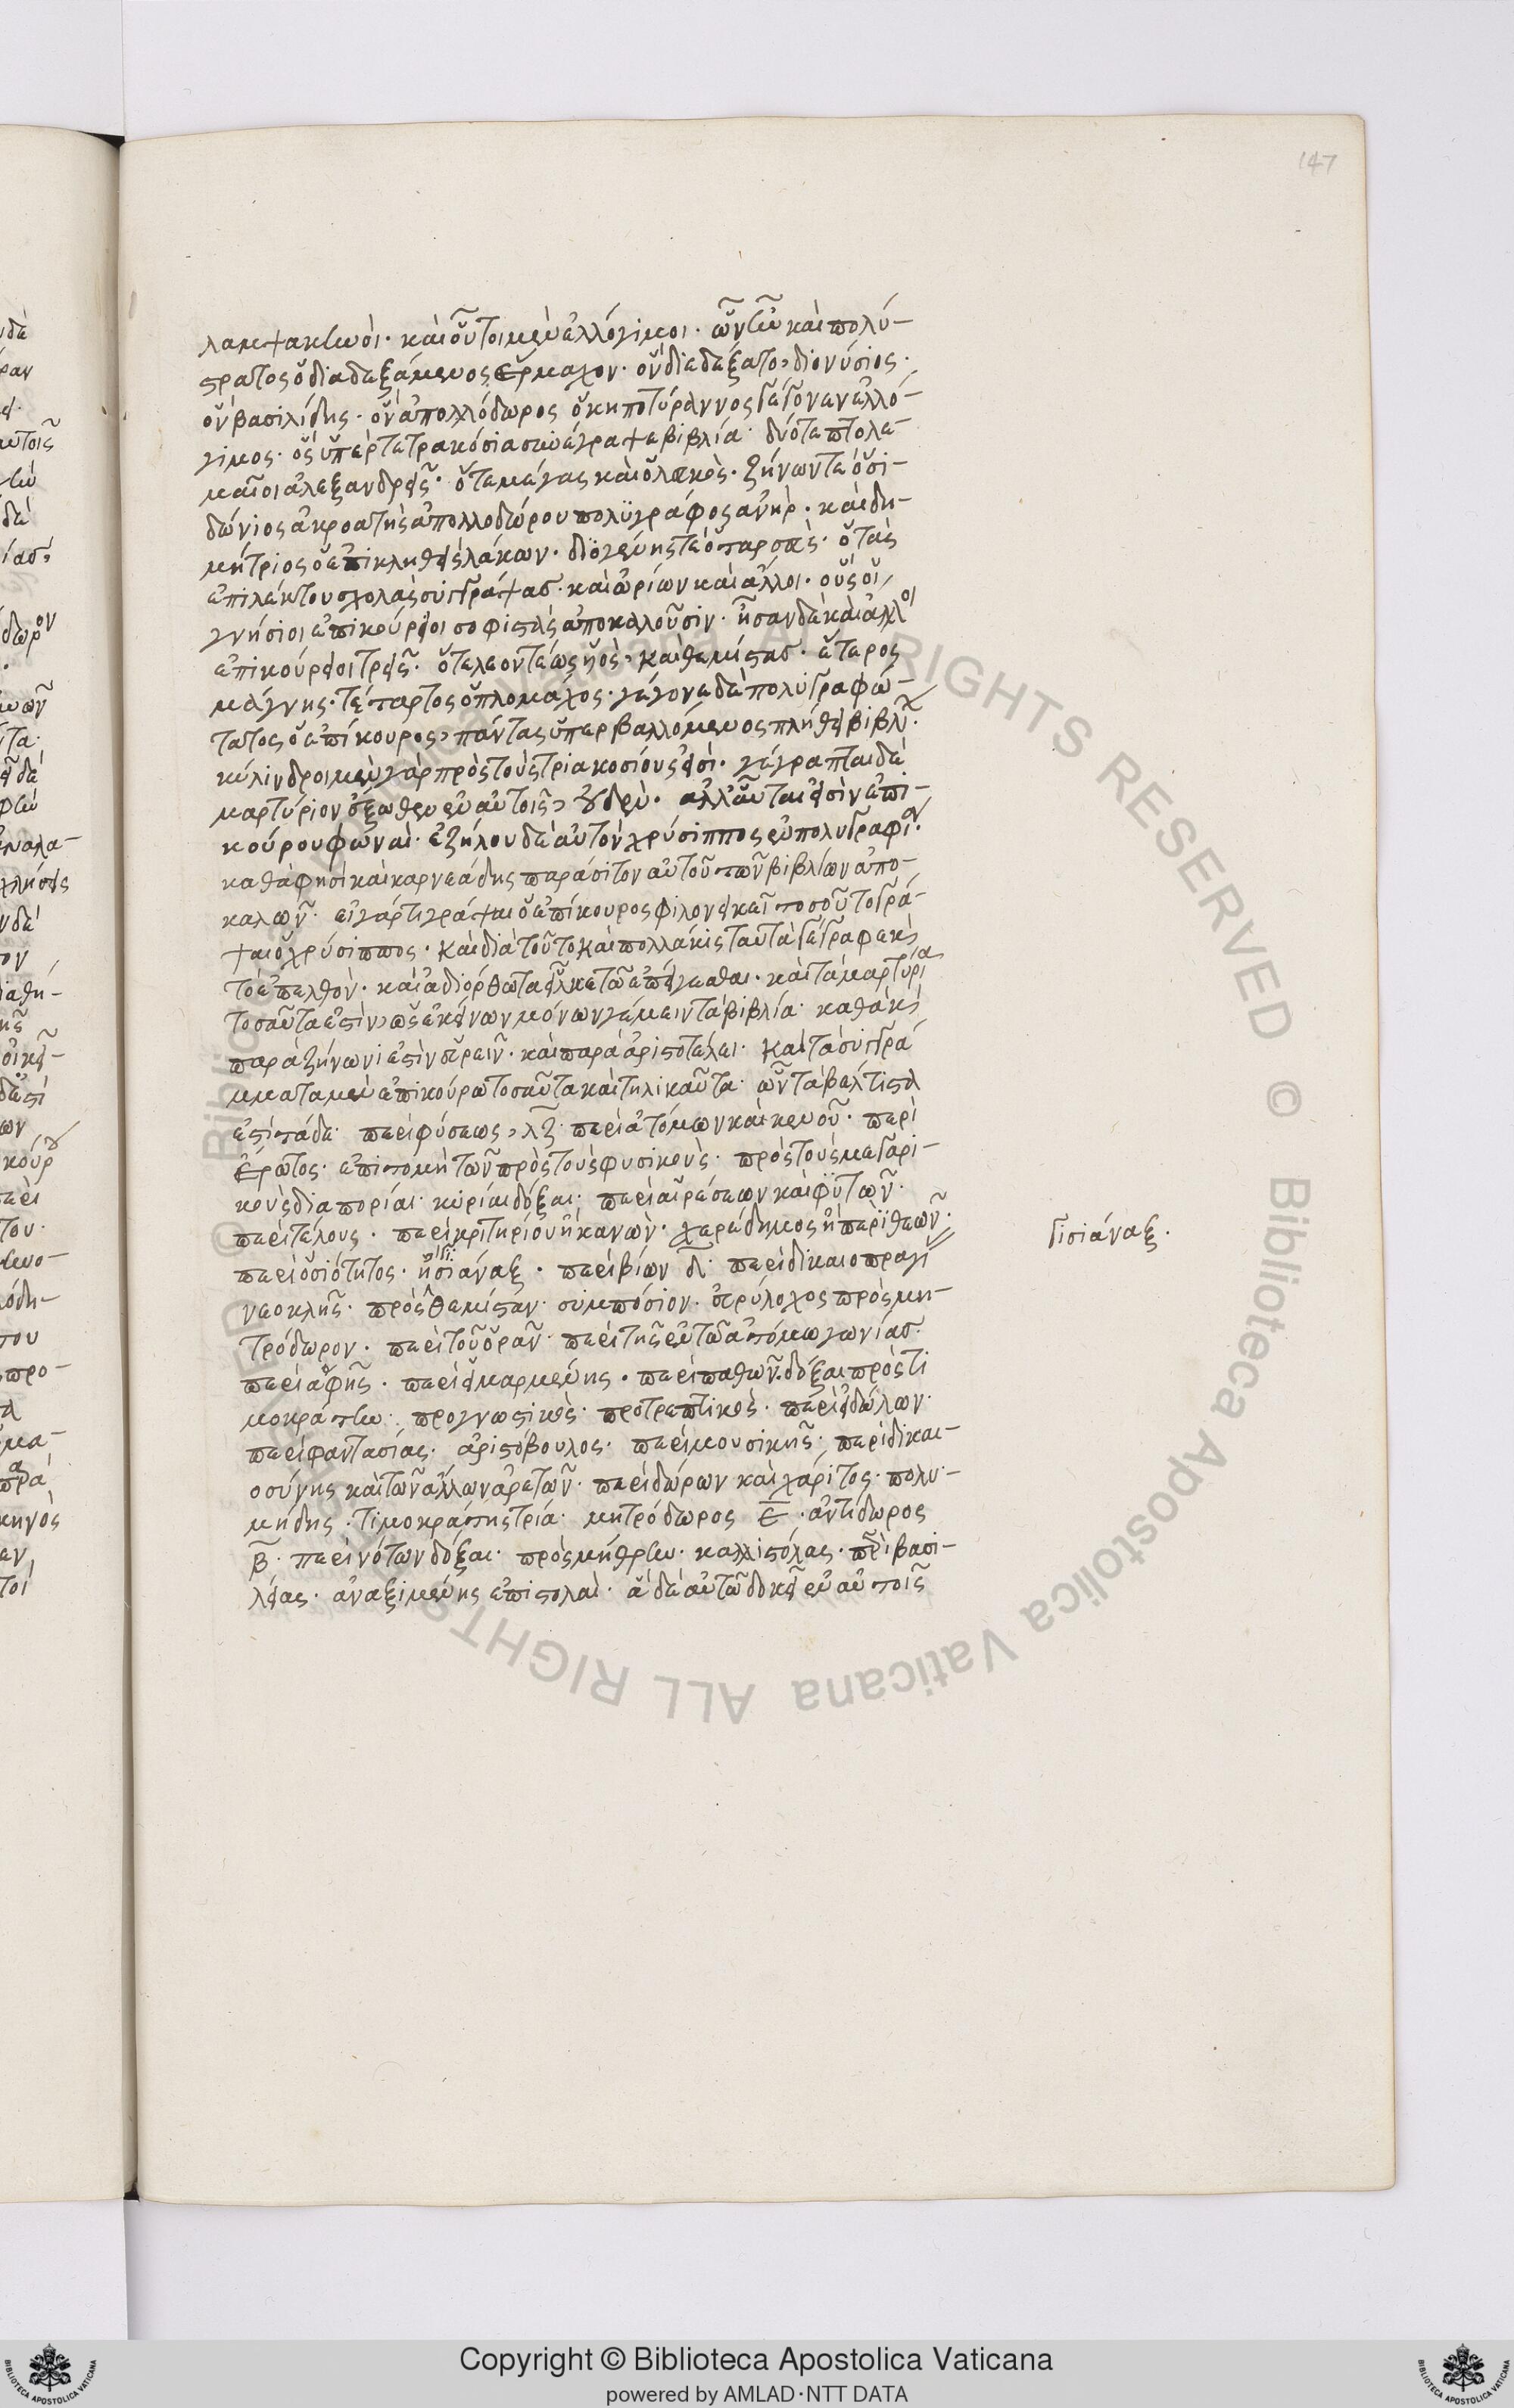 147
λαμψακηνοὶ· καὶ οὗτοι μὲν ἐλλόγιμοι· ὧν ἦν καὶ πολύ-
στρατος ὁ διαδεξάμενος ἕρμαχον· ὃν διεδέξατο, διονύσιος·
ὃν βασιλίδης· ὃν ἀπολλόδωρος ὁ κηποτύραννος γέγονεν ἐλλό-
γιμος· ὃς ὑπὲρ τετρακόσια συνέγραψε βιβλία· δύο τε πτολε-
μαῖοι ἀλεξανδρεῖς· ὅ τε μέγας καὶ ὁ λευκὸς· ζήνων τε ὁ σι-
δώνιος ἀκροατὴς ἀπολλοδώρου πολυγράφος ἀνὴρ· καὶ δη-
μήτριος ὁ ἐπικληθεὶς λάκων· διογένης τε ὁ ταρσεὺς· ὁ τὰς
ἐπιλέκτου σχολὰς συγγράψας· καὶ ὠρίων καὶ ἄλλοι· οὓς οἱ
γνήσιοι ἐπικούρειοι σοφιστὰς ἀποκαλοῦσιν· ἦσαν δὲ καὶ ἄλλοι
ἐπικούρειοι τρεῖς· ὅ τε λεοντέως ὑὸς, καὶ θεμίστας· ἕτερος
μάγνης· τέταρτος ὁπλομάχος· γέγονε δὲ πολυγραφώ-
τατος ὁ ἐπίκουρος, πάντας ὑπερβαλλόμενος πλήθει βιβλ
κύλινδροι μὲν γὰρ πρὸς τοὺς τριακοσίους εἰσὶ· γέγραπται δὲ
μαρτύριον ἔξωθεν ἐν αὐτοῖς, οὐδὲν· ἀλλ' αὗταί εἰσὶν ἐπι-
κούρου φωναὶ· ἐζήλου δὲ αὐτὸν χρύσιππος ἐν πολυγραφία
καθά φησι καὶ καρνεάδης παράσιτον αὐτοῦ τῶν βιβλίων ἀπο-
καλῶν· εἰ γάρ τι γράψαι ὁ ἐπίκουρος φιλονεικεῖ τοσοῦτο γρά-
ψαι ὁ χρύσιππος· καὶ διὰ τοῦτο καὶ πολλάκις ταυτὰ γέγραφε καὶ
τὸ ἐπελθὸν· καὶ ἀδιόρθωτα εἴληκε τῶ ἐπείγεσθαι· καὶ τὰ μαρτύρια
τοσαῦτά ἐστιν, ὡς ἐκείνων μόνων γέμειν τὰ βιβλία· καθὰ καὶ
παρὰ ζήνωνί ἐστιν εὑρεῖν· καὶ παρὰ ἀριστοτέλει· καὶ τὰ συγγρά
μματα μὲν ἐπικούρω τοσαῦτα καὶ τηλικαῦτα· ὧν τὰ βέλτιστα
ἐστὶ τάδε· περὶ φύσεως, λζ· περὶ ἀτόμων καὶ κενοῦ· περὶ
ἔρωτος· ἐπιτομὴ τῶν πρὸς τοὺς φυσικοὺς· πρὸς τοὺς μεγαρι-
κοὺς διαπορίαι· κύριαι δόξαι· περὶ αἱρέσεων καὶ φυτῶν·
περὶ τέλους· περὶ κριτηρίου ἢ κανὼν· χερέδημος ἢ περὶ θεῶν·
περὶ ὁσιότητος· ἡσιάναξ· περὶ βίων δ· περὶ δικαιοπραγί
γισιάναξ·
νεοκλῆς· πρὸς θεμίσταν· συμπόσιον· εὐρύλοχος πρὸς μη-
τρόδωρον· περὶ τοῦ ὁρᾶν· περὶ τῆς ἐν τῶ ἀτόμω γωνίας·
περὶ ἁφῆς· περὶ εἱμαρμένης· περὶ παθῶν· δόξαι πρὸς τι
μοκράτην· προγνωστικὸς· προτρεπτικὸς· περὶ εἰδώλων·
περὶ φαντασίας· ἀριστόβουλος· περὶ μουσικῆς· περὶ δικαι-
οσύνης καὶ τῶν ἄλλων ἀρετῶν· περὶ δώρων καὶ χάριτος· πολυ-
μήδης· τιμοκράτης τρία· μητρόδωρος ε· ἀντίδωρος
β· περὶ νότων δόξαι· πρὸς μήθρην· καλλιστόλας· περὶ βασι-
λείας· ἀναξιμένης ἐπιστολαὶ· ἃ δὲ αὐτῶ δοκεῖ ἐν αὐτοῖς
Copyright © Biblioteca Apostolica Vaticana
powered by AMLAD·NTT DATA